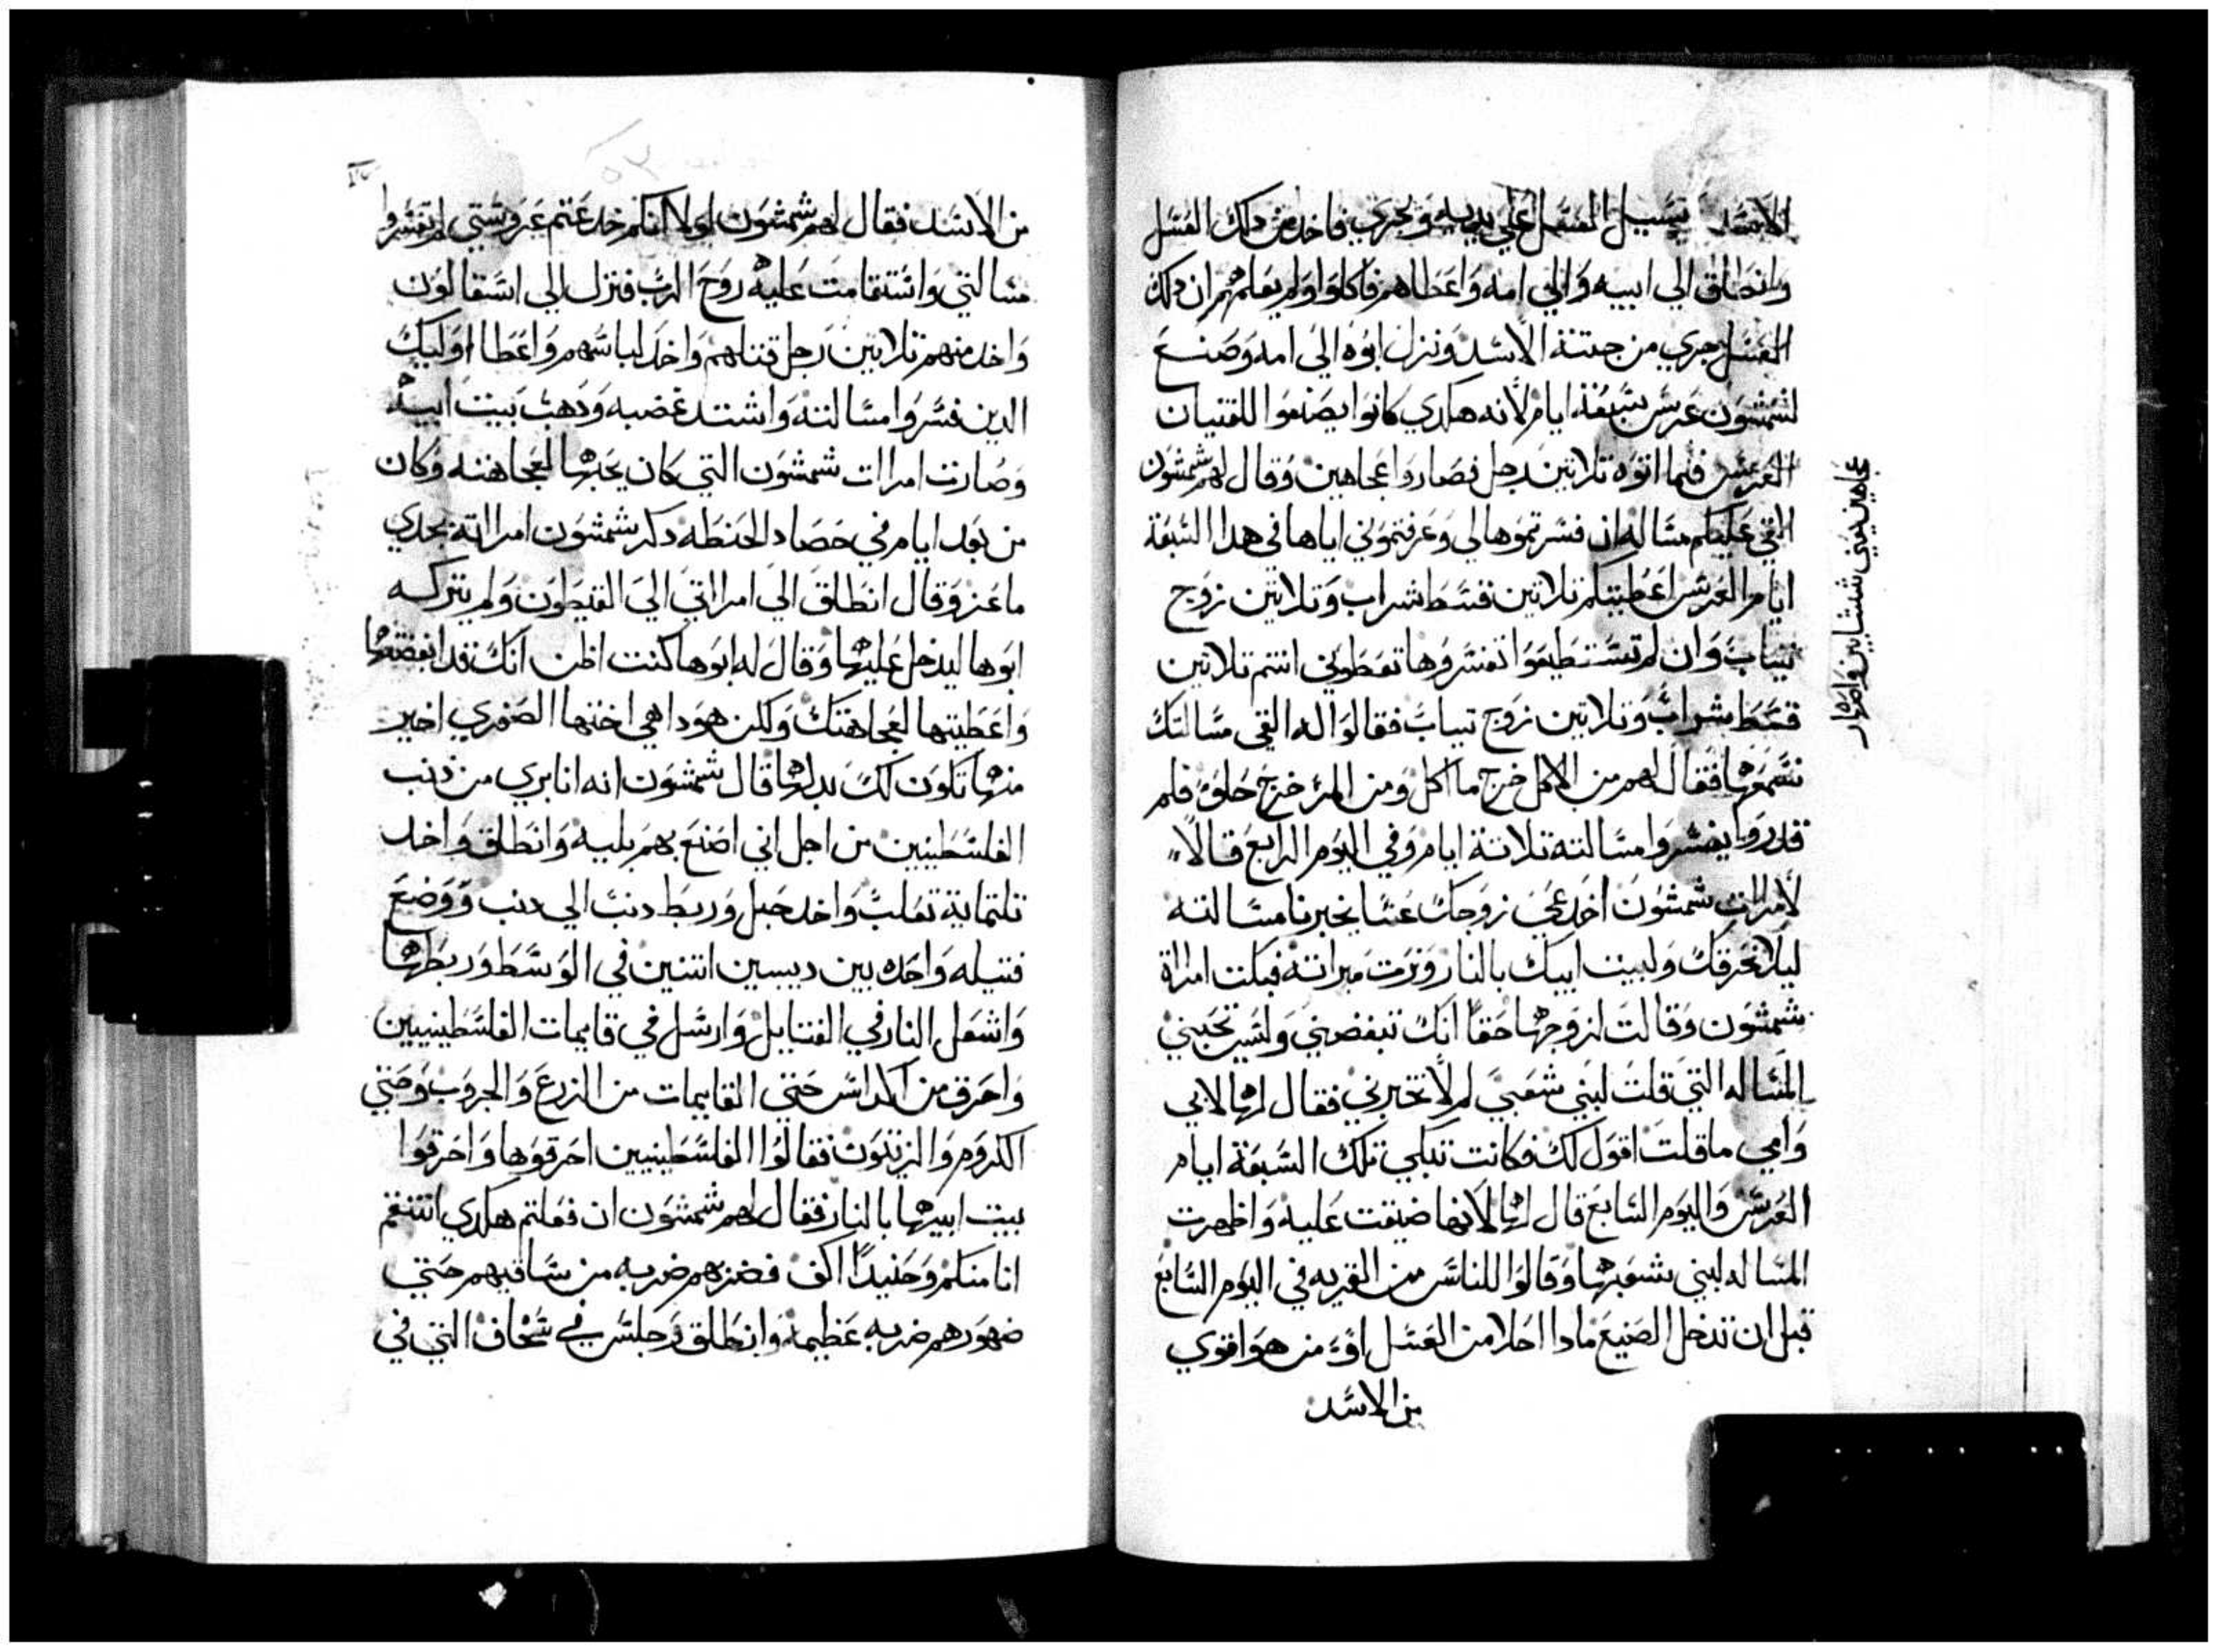 الاسد يسيل العسل علي يديه وبجري فاخد من دلك العسل
وانطلق الي ابيه والي امه واعطاهم فاكلوا ولم يعلمهم ان دلك
العسل جري من جتتة الاسد ونزل ابوه الي امه وصنع
لشمشون عرس سبعة ايام لانه هكدي كانوا يصنعوا للفتيان
العرس فلما اتوه تلاتين رجل فصاروا عجاهين وقال لهم شمشون
القي عليكم مساله ان فسرتموها لي وعرفتموني اياها في هدا السبعة
ايام العرس اعطيتكم تلاتين قسط شراب وتلاتين زوج
تياب وان لم تستطيعوا تفسروها تعطوني انتم تلاتين
قسط شراب وتلاتين زوج تياب فقالوا له القي مسالتك
نسمعها فقال لهم من الاكل خرج ماكل ومن المر خرج حلو فلم
قدروا يفسروا مسالته تلاتة ايام وفي اليوم الرابع قالا
لامرات شمشون اخدعي زوجك عسا يخبرنا مسالته
ليلا نحرقك ولبيت ابيك بالنار ونرت ميراته فبكت امراة
شمشون وقالت لزوجها حقا انك تبغضني ولسن تحبني
المساله التي قلت لبني شعبي لم لا تخبرني فقال لها لابي
وامي ما قلت اقول لك فكانت تبكي تلك السبعة ايام
العرس واليوم السابع قال لها لانها ضيقت عليه واظهرت
المساله لبني شعبها وقالوا للناس من القريه في اليوم السابع
قبل ان تدخل الصنيع مادا احلا من العسل او من هو اقوي
من الاسد
عجاهين يعني ششابين واصهار
من الاسد فقال لهم شمشون لولا انكم خدعتم عروستي لم تفسروا
مسالتي واستقامت عليه روح الرب فنزل الي اسقالون
واخد منهم تلاتين رجل قتلهم واخد لباسهم واعطا اوليك
الدين فسروا مسالته واشتد غضبه ودهب بيت ابيه
وصارت امرات شمشون التي كان يحبها لعجاهنه وكان
من بعد ايام في حصاد الحنطه دكر شمشون امراته بجدي
ماعز وقال انطلق الي امراتي الي القيطون ولم يتركه
ابوها ليدخل عليها وقال له ابوها كنت اظن انك قد ابغضتها
واعطيتها لعجاهنك ولكن هودا هي اختها الصغري اخير
منها تكون لك بدلها قال شمشون انه انا بري من دنب
الفلسطينين من اجل اني اصنع بهم بليه وانطلق واخد
تلتماية تعلب واخد حبل وربط دنب الي دنب ووضع
فتيله واحده بين ديبين اتنين في الوسط وربطها
واشعل النار في الفتايل وارسل في قايمات الفلسطينيين
واحرق من اكداس حتي القايمات من الزرع والجروب وحتي
الكروم والزيتون فقالوا الفلسطينيين احرقوها واحرقوا
بيت ابيها بالنار فقال لهم شمشون ان فعلتم هكدي انتقم
انا منكم وحنيدا اكف فضربهم ضربه من ساقيهم حتي
ضهورهم ضربه عظيمة وانطلق وجلس في شحاف التي في